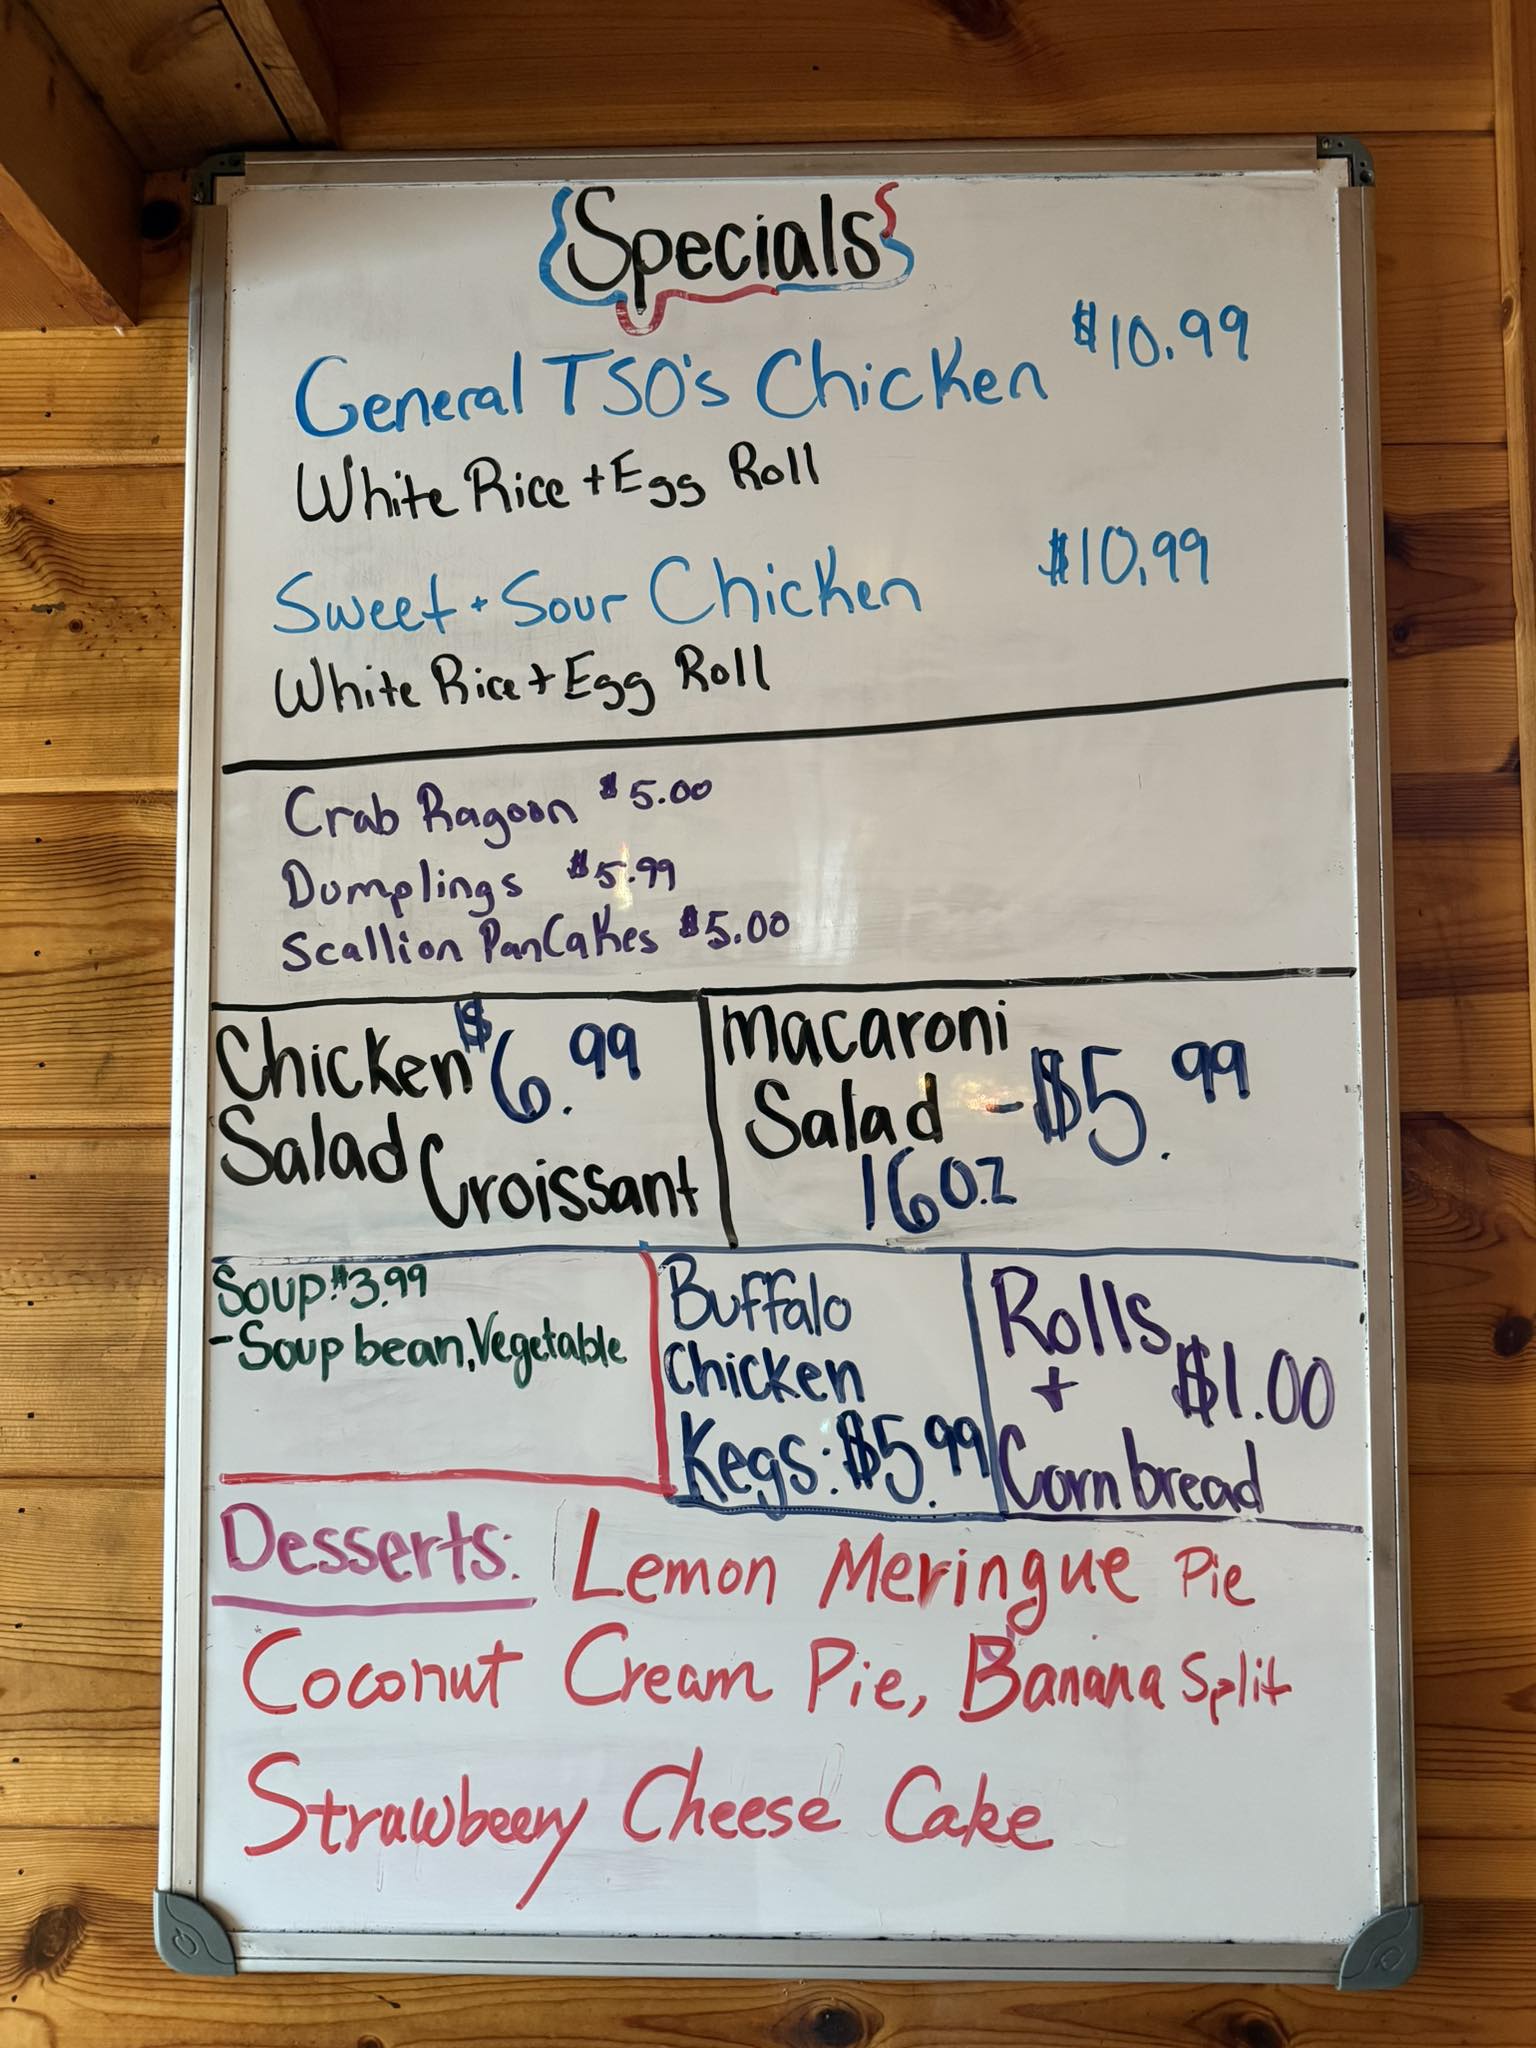 Specials
General TSO's Chicken $10.99
White Rice + Egg Roll
Sweet + Sour Chicken $10.99
White Rice + Egg Roll
Crab Ragoon $5.00
Dumplings $5.99
Scallion PanCakes $5.00
Chicken $6.99
Salad Croissant
Macaroni
Salad - $5.99
16oz
Soup: $3.99
- Soup bean, Vegetable
Buffalo
Chicken
Kegs: $5.99
Rolls
+ $1.00
Corn bread
Desserts: Lemon Meringue Pie
Coconut Cream Pie, Banana Split
Strawbeery Cheese Cake